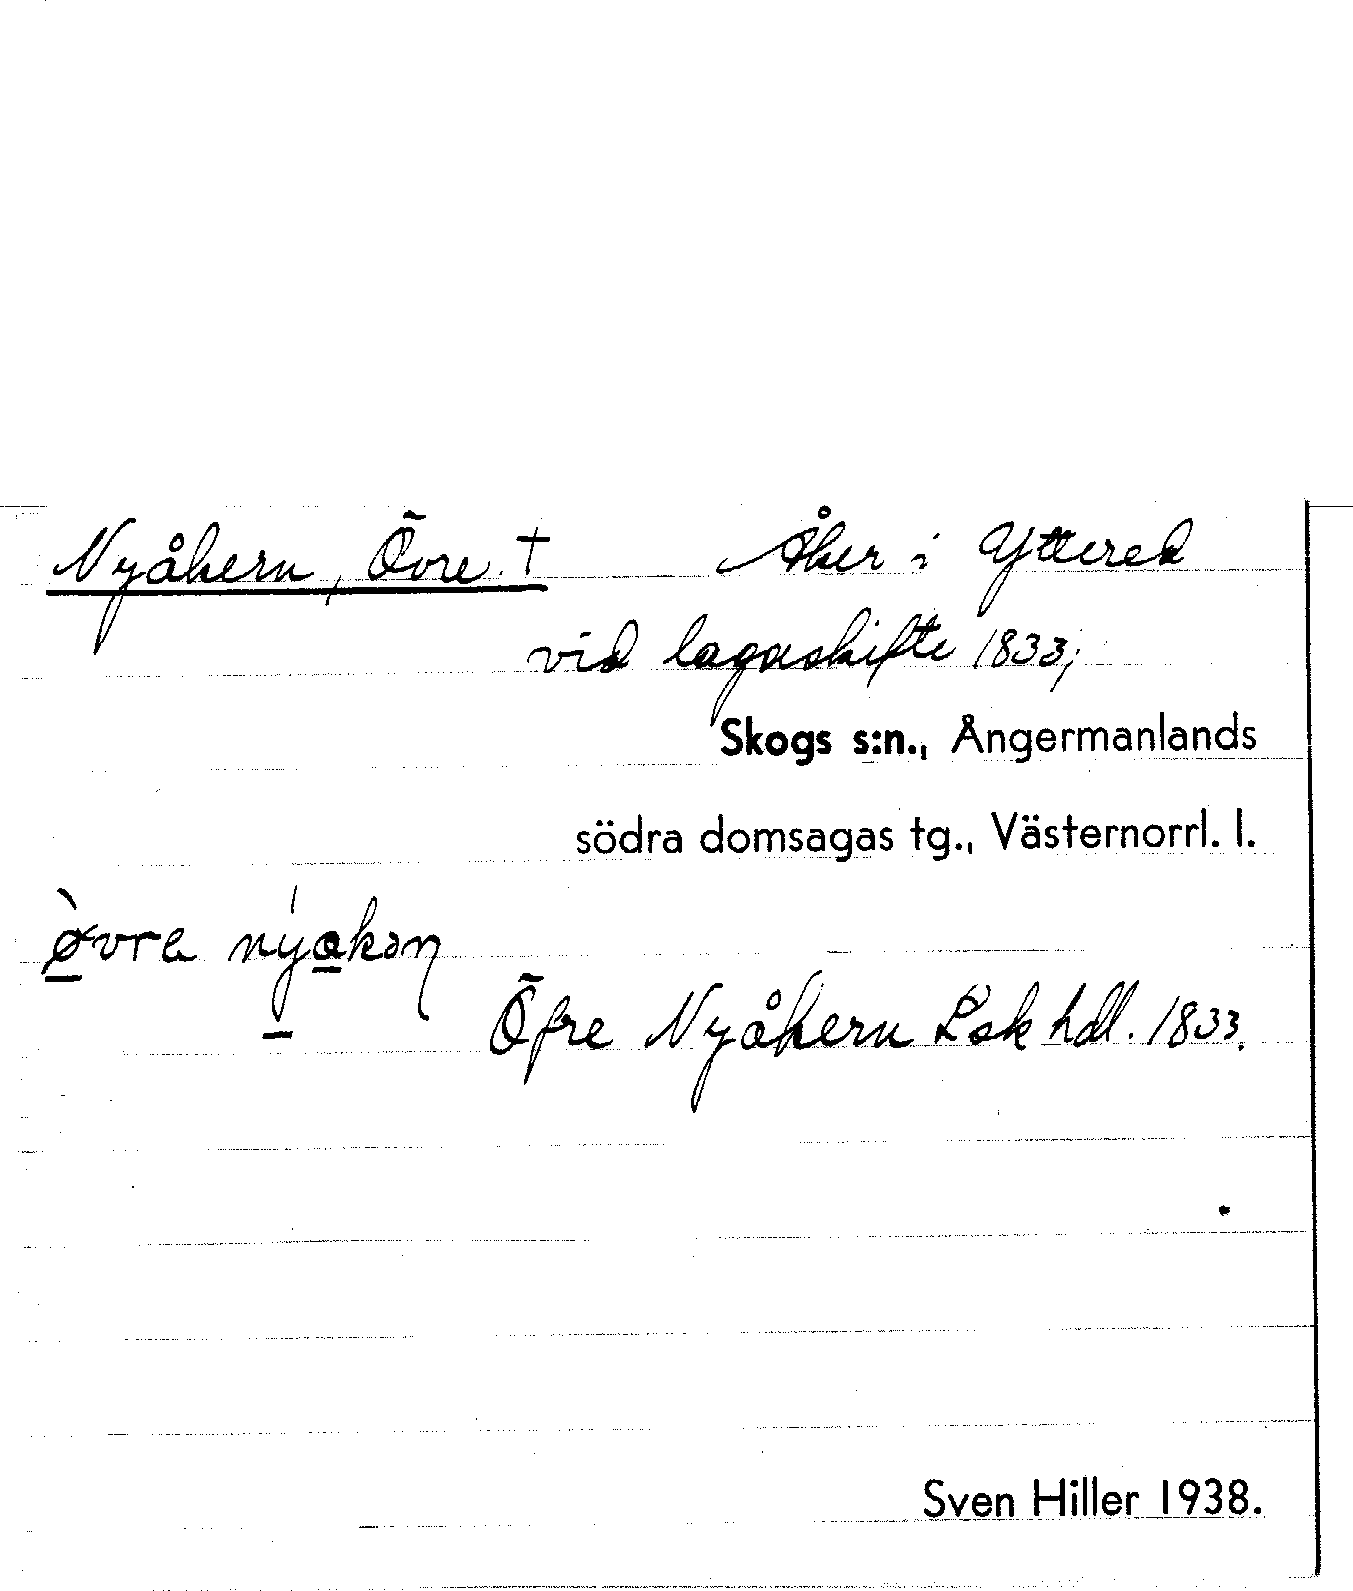 Nyåkern, Övre. † Åker i Yttered
vid lagaskifte 1833;
Skogs s:n., Ångermanlands
södra domsagas tg., Västernorrl. l.
Öfre Nyåkern Lsk hdl. 1833.
Sven Hiller 1938.